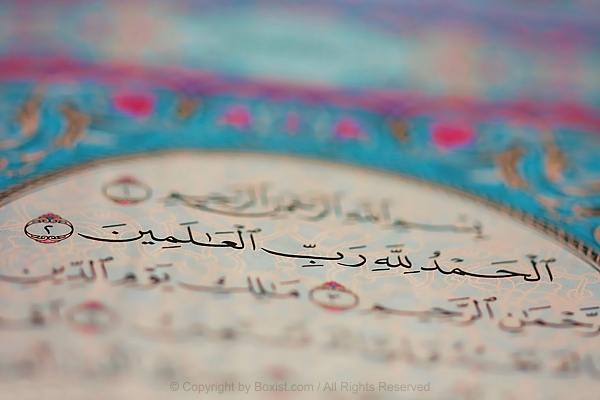 بِسْمِ ٱللَّهِ ٱلرَّحْمَٰنِ ٱلرَّحِيمِ ١
ٱلْحَمْدُ لِلَّهِ رَبِّ ٱلْعَٰلَمِينَ ٢
ٱلرَّحْمَٰنِ ٱلرَّحِيمِ ٣ مَٰلِكِ يَوْمِ ٱلدِّينِ
© Copyright by Boxist.com / All Rights Reserved